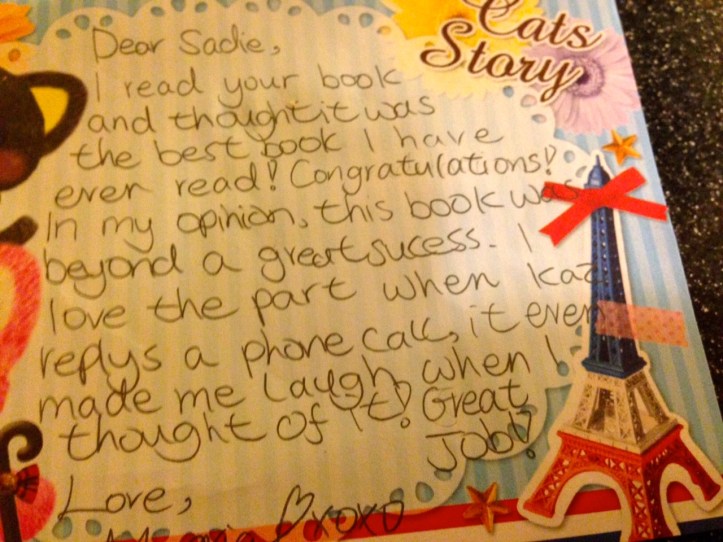 Cats
Story
Dear Sadie,
I read your book
and thought it was
the best book I have
ever read! Congratulations!
In my opinion, this book was
beyond a great sucess. I
love the part when
replys a phone call, it even
made me laugh when I
thought of it! Great
Job!
Love,
xoxo